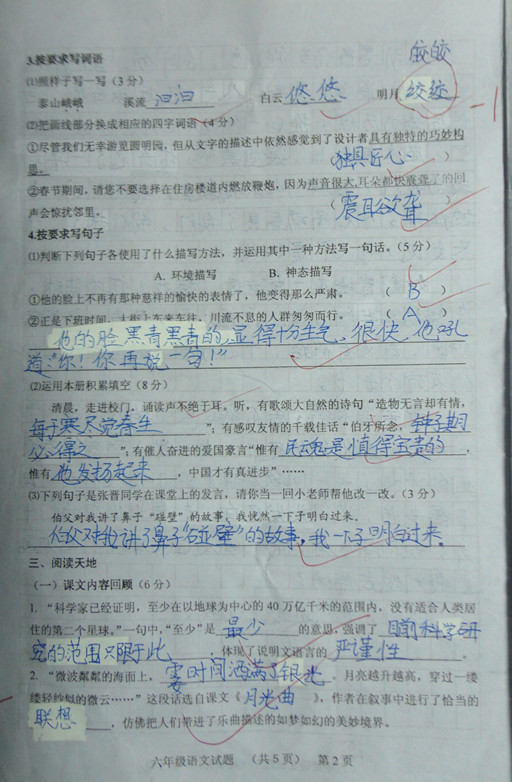 3.按要求写词语
皎皎
⑴照样子写一写（3分）
泰山峨峨 溪流汩汩 白云悠悠 明月皎皎
-1
⑵把画线部分换成相应的四字词语（4分）
①尽管我们无幸游览圆明园，但从文字的描述中依然感觉到了设计者具有独特的巧妙构
思。（独具匠心）
②春节期间，请您不要选择在住房楼道内燃放鞭炮，因为声音很大，耳朵都快震聋了的回
声会惊扰邻里。（震耳欲聋）
4.按要求写句子
⑴判断下列句子各使用了什么描写方法，并运用其中一种方法写一句话。（5分）
A. 环境描写 B. 神态描写
①他的脸上不再有那种慈祥的愉快的表情了，他变得那么严肃。（B）
②正是下班时间，大街上车来车往，川流不息的人群匆匆而行。（A）
他的脸黑青黑青的，显得十分生气，很快，他吼
道：“你！你再说一句！”
⑵运用本册积累填空（8分）
清晨，走进校门，诵读声不绝于耳。听，有歌颂大自然的诗句“造物无言却有情，
每于寒尽觉春生”；有感叹友情的千载佳话“伯牙所念，钟子期
必得之”；有催人奋进的爱国豪言“惟有民魂是值得宝贵的，
惟有他发扬起来，中国才有真进步”……
⑶下列句子是张晋同学在课堂上的发言，请你当一回小老师帮他改一改。（3分）
伯父对我讲了鼻子“碰壁”的故事，我恍然一下子明白过来。
伯父对我讲了鼻子“碰壁”的故事，我一下子明白过来。
三、阅读天地
（一）课文内容回顾（6分）
1. “科学家已经证明，至少在以地球为中心的40万亿千米的范围内，没有适合人类居
住的第二个星球。”一句中，“至少”是最少的意思，强调了目前科学研
究的范围只限于此，体现了说明文语言的严谨性。
2. “微波粼粼的海面上，霎时间洒满了银光。月亮越升越高，穿过一缕
缕轻纱似的微云……”这段话选自课文《月光曲》，作者在叙事中进行了恰当的
联想，仿佛把人们带进了乐曲描述的如梦如幻的美妙境界。
六年级语文试题 （共5页） 第2页